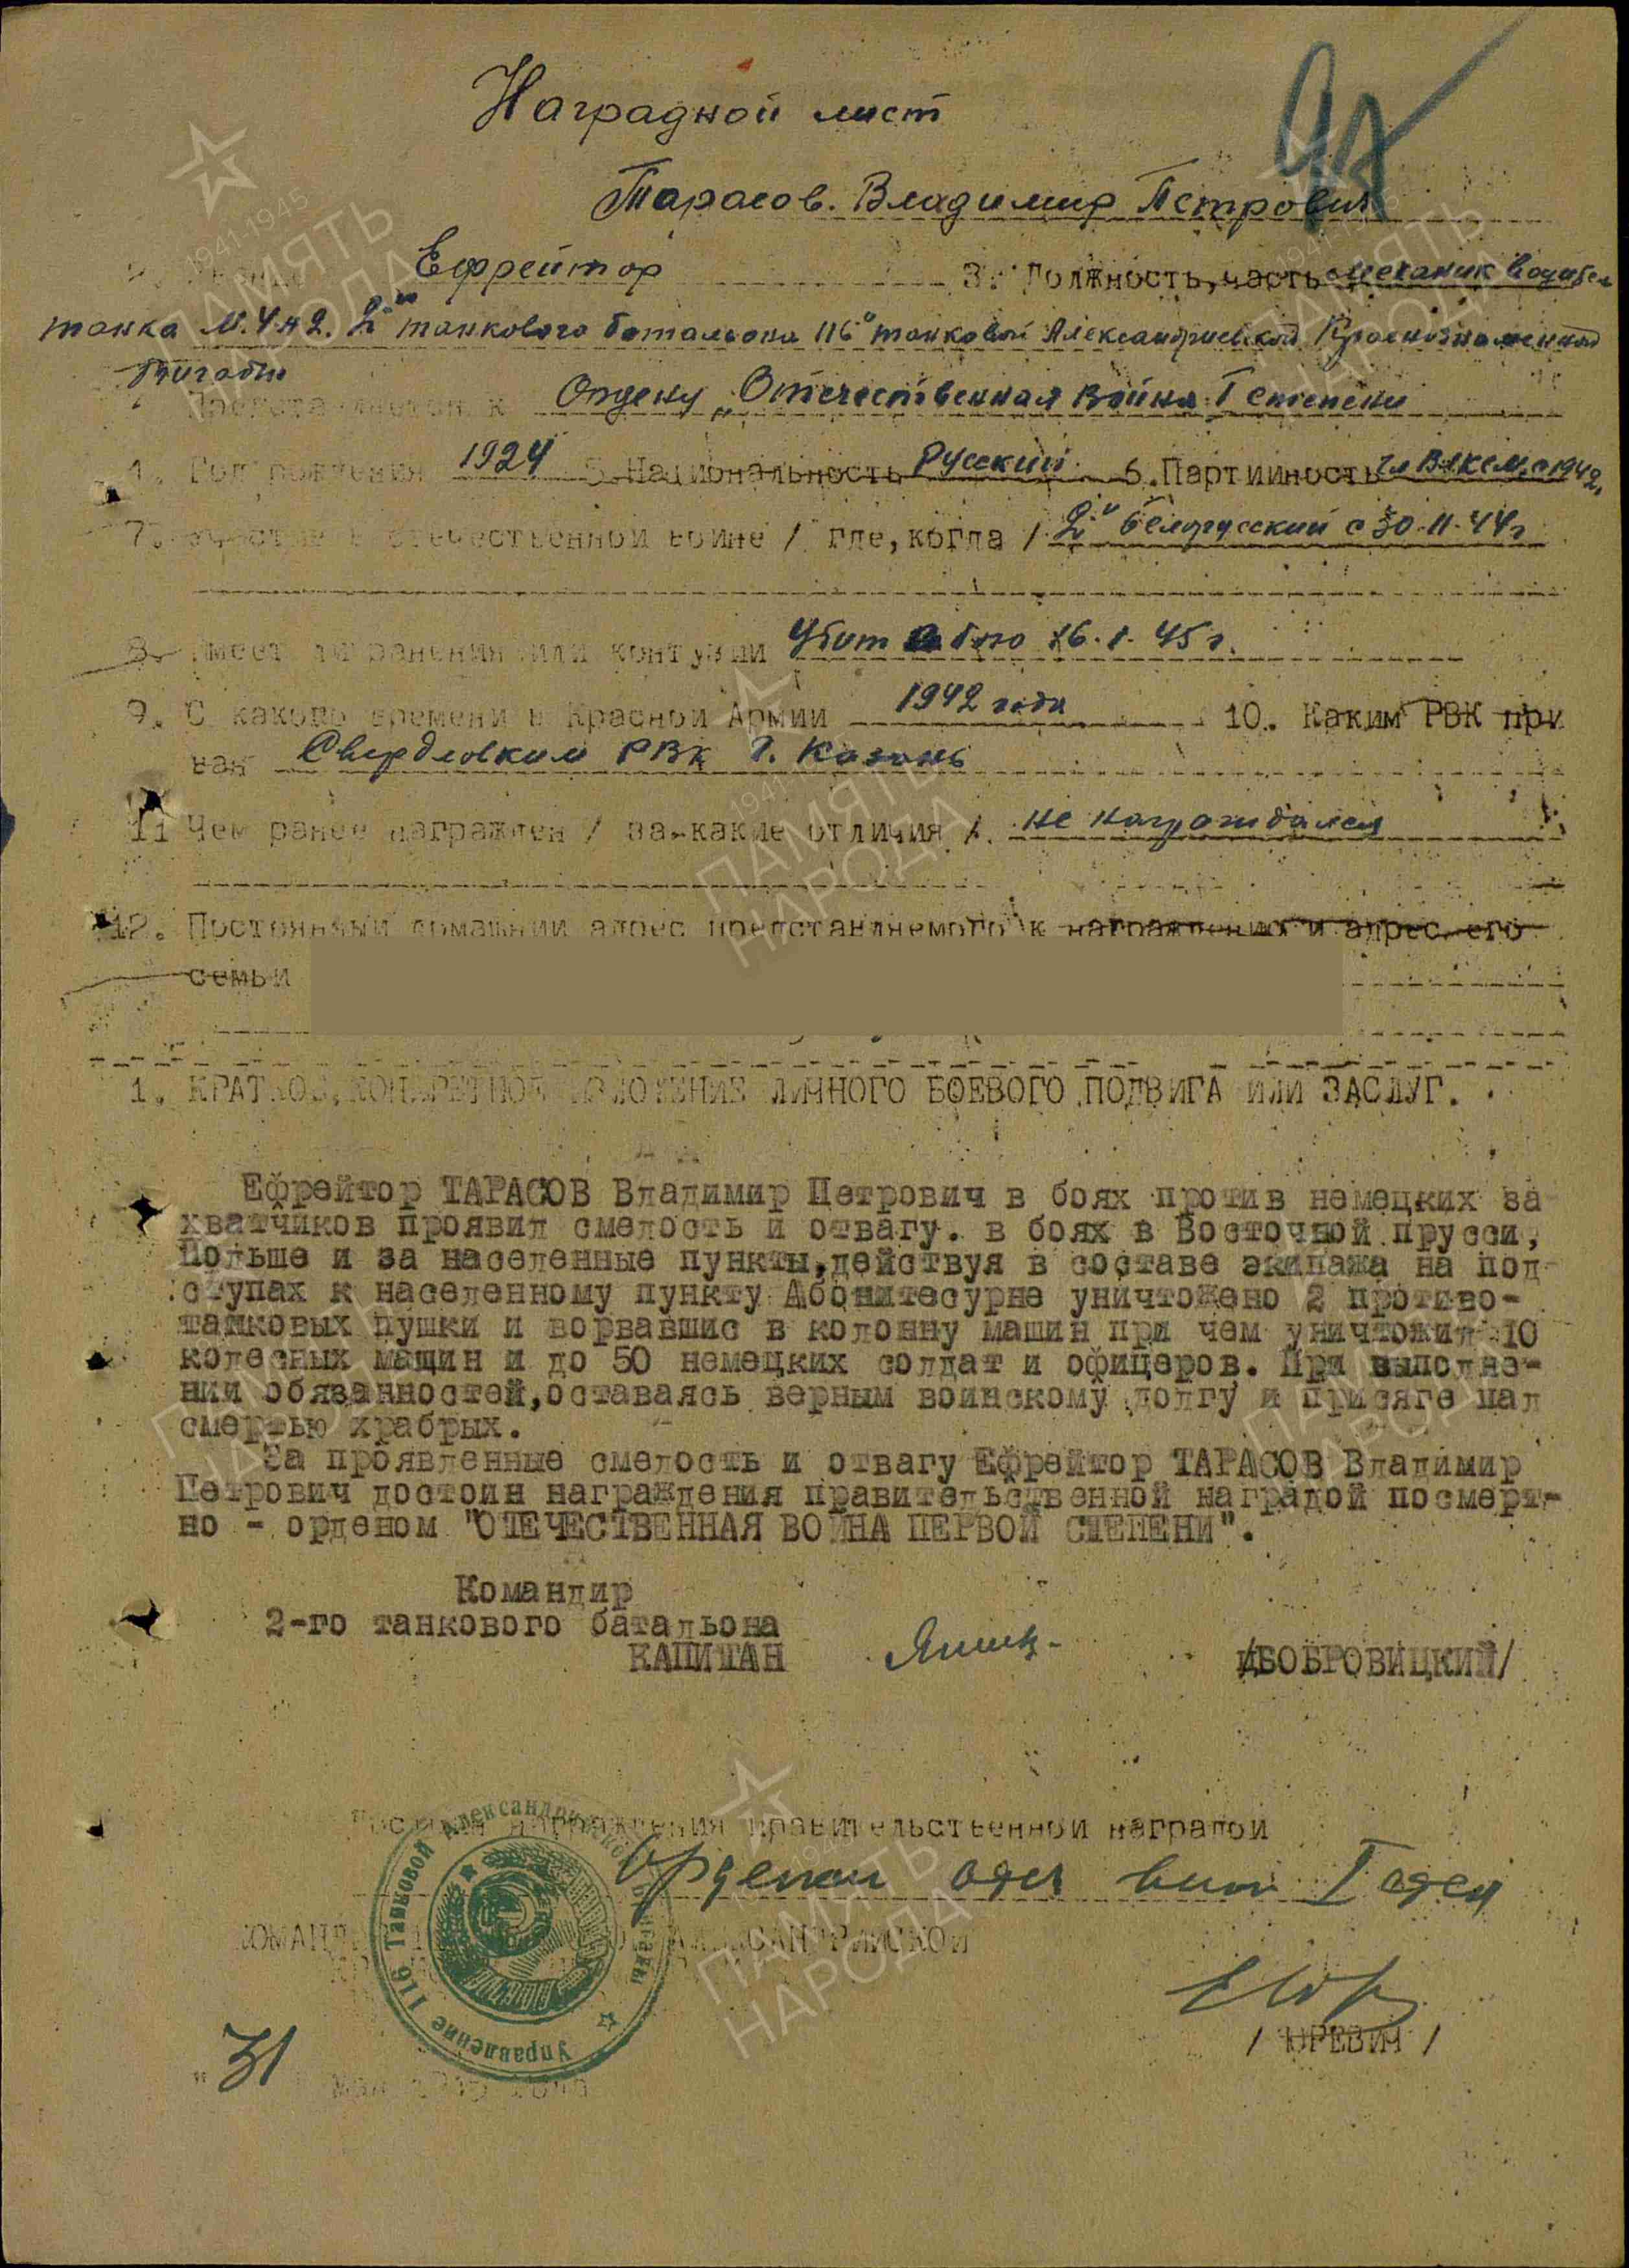 Наградной лист
Тарасов. Владимир Петрович
Ефрейтор 3. Должность, часть механик водител
танка М.4А2. 2го танкового батальона 116й танковой Александрийской Краснознаменной
Бригады
Представляется к Ордену "Отечественная Война I степени
4. Год рождения 1924 5. Национальность Русский 6. Партийность чл ВЛКСМ с 1942.
7. участие в отечественной войне / где, когда / 2й Белорусский с 30.11.44г
8. имеет ли ранения или контузии Убит в бою 16.1.45г.
9. С какого времени в Красной Армии 1942 года 10. Каким РВК при
ван Свердловским РВК г. Казань
11 Чем ранее награжден / за какие отличия /. не награждался
12. Постоянный домашний адрес представляемого к награждению и адрес его
семьи
1. КРАТКОЕ, КОНКРЕТНОЕ ИЗЛОЖЕНИЕ ЛИЧНОГО БОЕВОГО ПОДВИГА ИЛИ ЗАСЛУГ.
Ефрейтор ТАРАСОВ Владимир Петрович в боях против немецких за
хватчиков проявил смелость и отвагу. в боях в Восточной прусси,
Польше и за населенные пункты, действуя в составе экипажа на под
ступах к населенному пункту Абонитесурне уничтожено 2 противо-
танковых пушки и ворвавшис в колонну машин при чем уничтожил 10
колесных машин и до 50 немецких солдат и офицеров. При выполне-
нии обязанностей, оставаясь верным воинскому долгу и присяге пал
смертью храбрых.
За проявленные смелость и отвагу Ефрейтор ТАРАСОВ Владимир
Петрович достоин награждения правительственной наградой посмерт-
но - орденом "ОТЕЧЕСТВЕННАЯ ВОЙНА ПЕРВОЙ СТЕПЕНИ".
Командир
2-го танкового батальона
КАПИТАН /БОБРОВИЦКИЙ/
Достоин награждения правительственной наградой
Орденом
КОМАНДИР АЛЕКСАНДРИЙСКОЙ
Управление 116 Танковой Александрийской Бригады
/ ЮРЕВИЧ /
"31" мая 1945 года
1941 1945
ПАМЯТЬ
НАРОДА